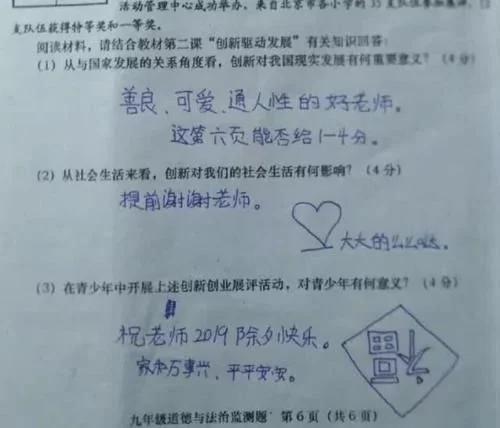 活动管理中心成功举办，来自北京市各小学的35支队伍参加
支队伍获得特等奖和一等奖。
阅读材料，请结合教材第二课“创新驱动发展”有关知识回答：
（1）从与国家发展的关系角度看，创新对我国现实发展有何重要意义？（4分）
善良、可爱、通人性的好老师。
这第六页能否给1-4分。
（2）从社会生活来看，创新对我们的社会生活有何影响？（4分）
提前谢谢老师。
大大的么么哒。
（3）在青少年中开展上述创新创业展评活动，对青少年有何意义？（4分）
祝老师2019除夕快乐。
家和万事兴、平平安安。
福
九年级道德与法治监测题 第6页（共6页）